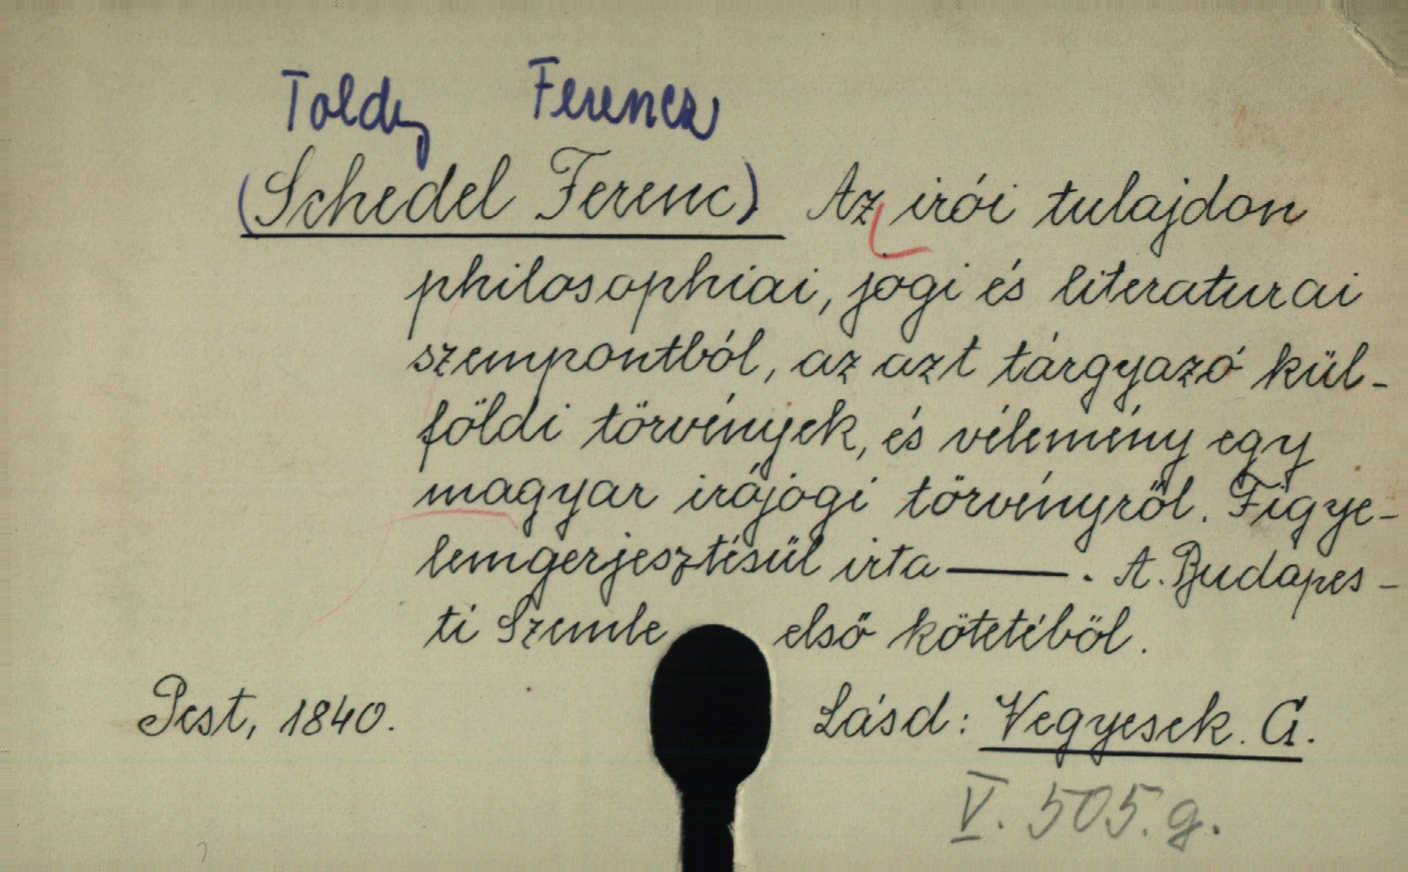 Toldy Ferencz
(Schedel Ferenc) Az irói tulajdon
philosophiai, jogi és literaturai
szempontból, az azt tárgyazó kül-
földi törvények, és vélemény egy
magyar irójogi törvényről. Figye-
lemgerjesztésül irta —— . A. Budapes-
ti Szemle első kötetéből.
Pest, 1840. Lásd: Vegyesek. G.
V. 505. g.